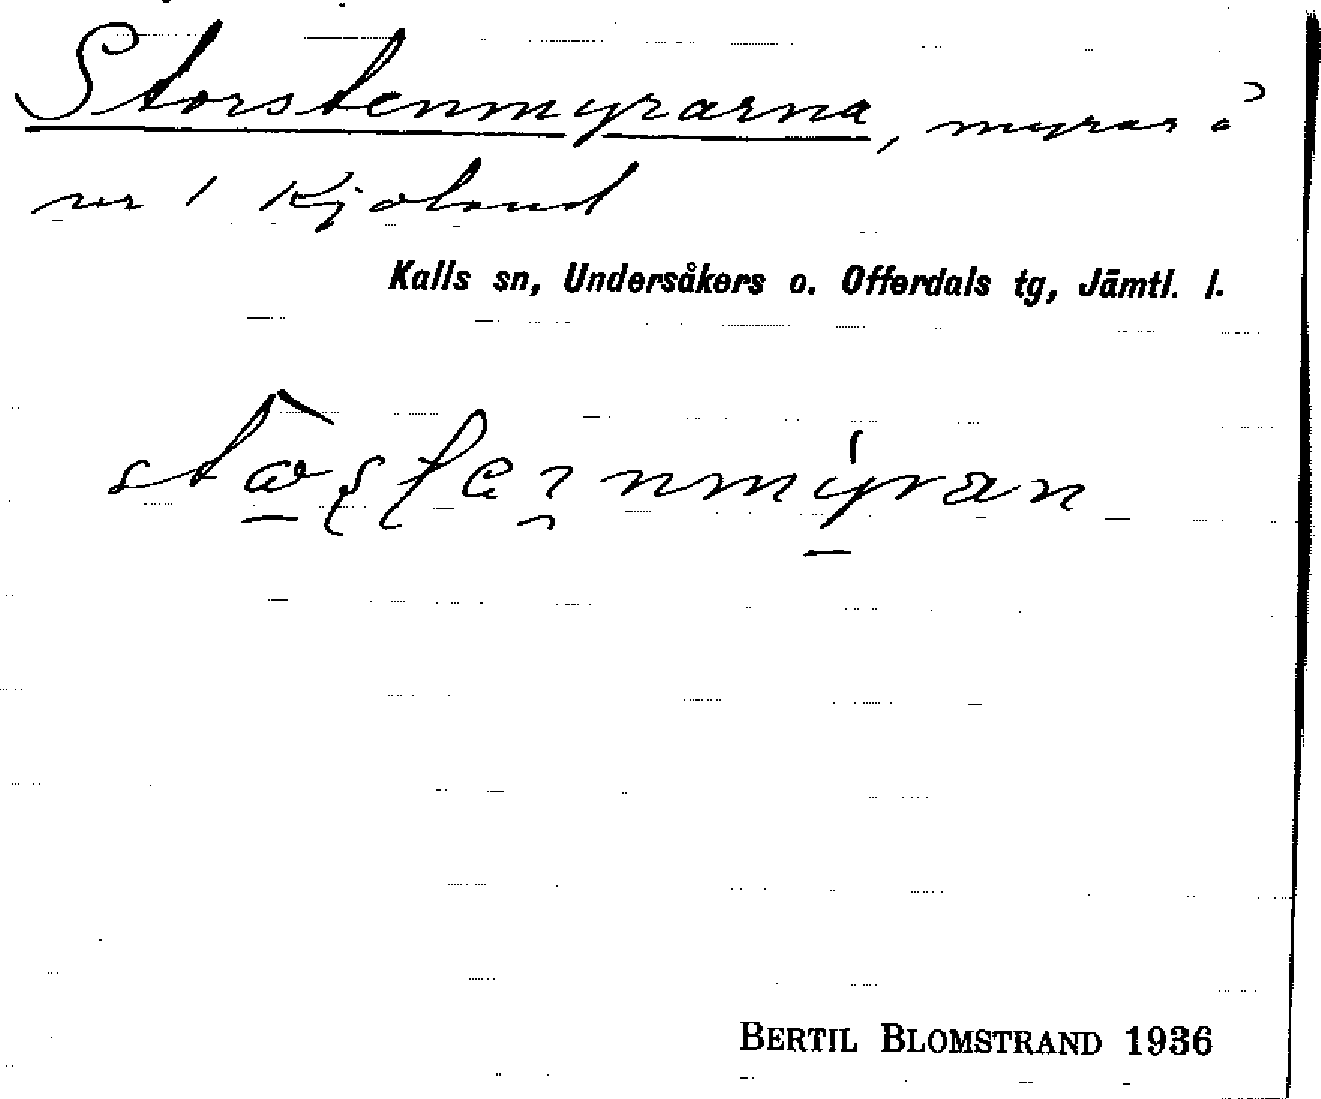 Storstenmyrarna, myrar å
nr 1 Kjoland
Kalls sn, Undersåkers o. Offerdals tg, Jämtl. l.
BERTIL BLOMSTRAND 1936